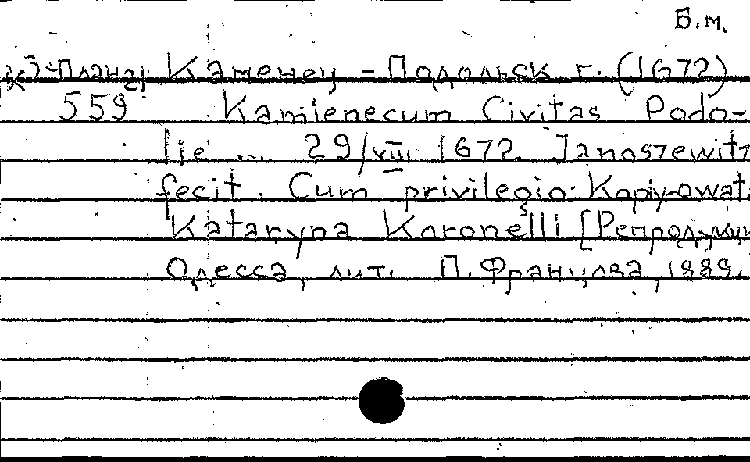 В.м.
К3-Планы Каменец-Подольск г. (1672)
559 Kamienecum Civitas Podo-
lie ... 29/VIII 1672. Janoszewitz
fecit. Cum privilegio. Kopiyowata
Kataryna Koronelli [Репродукция
Одесса, лит. П. Францова, 1889.